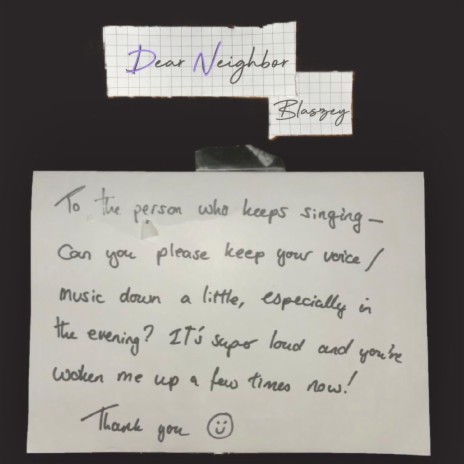 Dear Neighbor
Blaszey
To the person who keeps singing –
Can you please keep your voice/
music down a little, especially in
the evening? It's super loud and you're
woken me up a few times now!
Thank you ☺